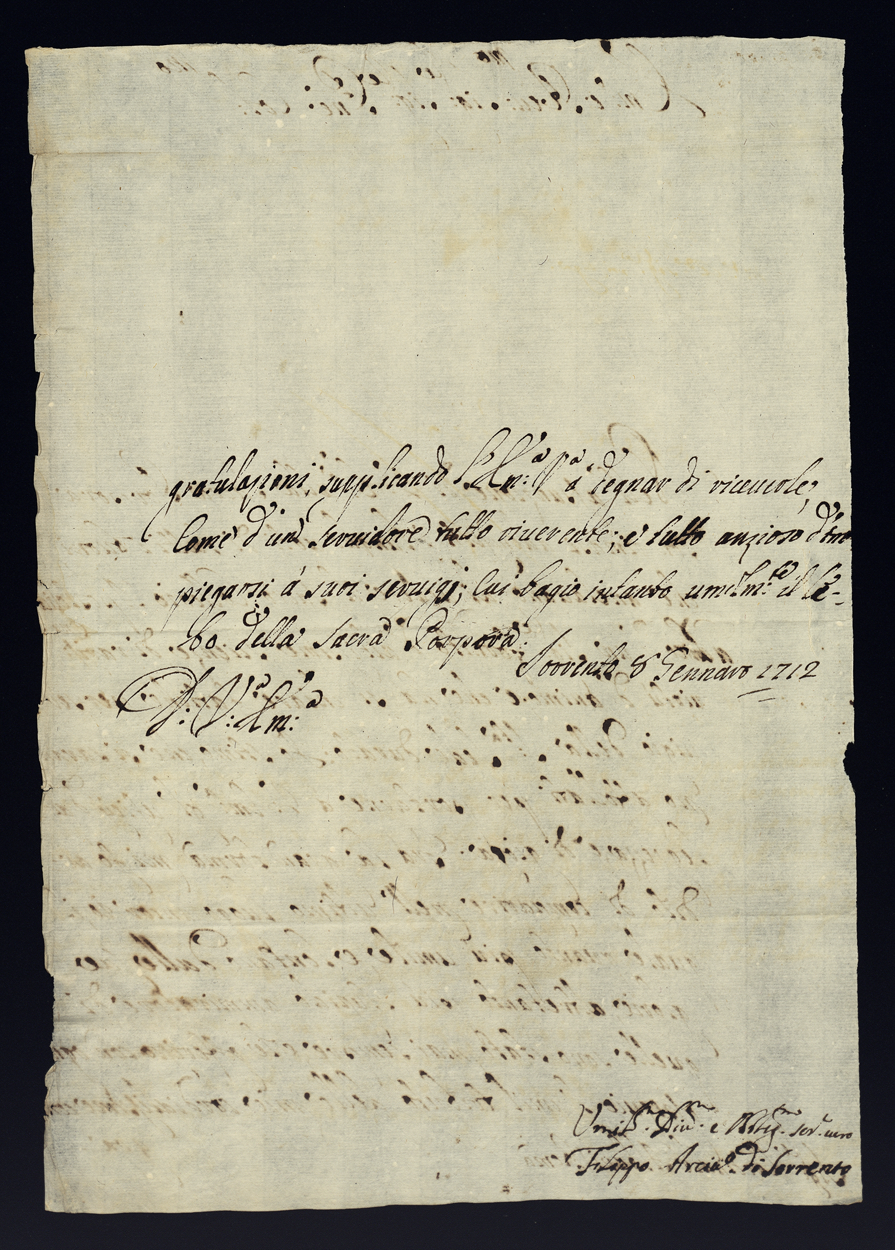 gratulazioni, supplicando l'Em:ᵃ Vᵃ à degnar di riceverle,
come d'un servidore tutto riverente; e tutto anzioso d'im
piegarsi à suoi servigi; cui bagio intanto umilm:ᵗᵉ il le-
bo della Sacra Porpora.
Sorrento 8 Gennaro 1712
D: V:ᵃ Em:ᵃ
Umilᵐᵒ. Divᵐᵒ. e Obligᵐᵒ. serᵉ. vero
Filippo Arciv⁰. di Sorrento